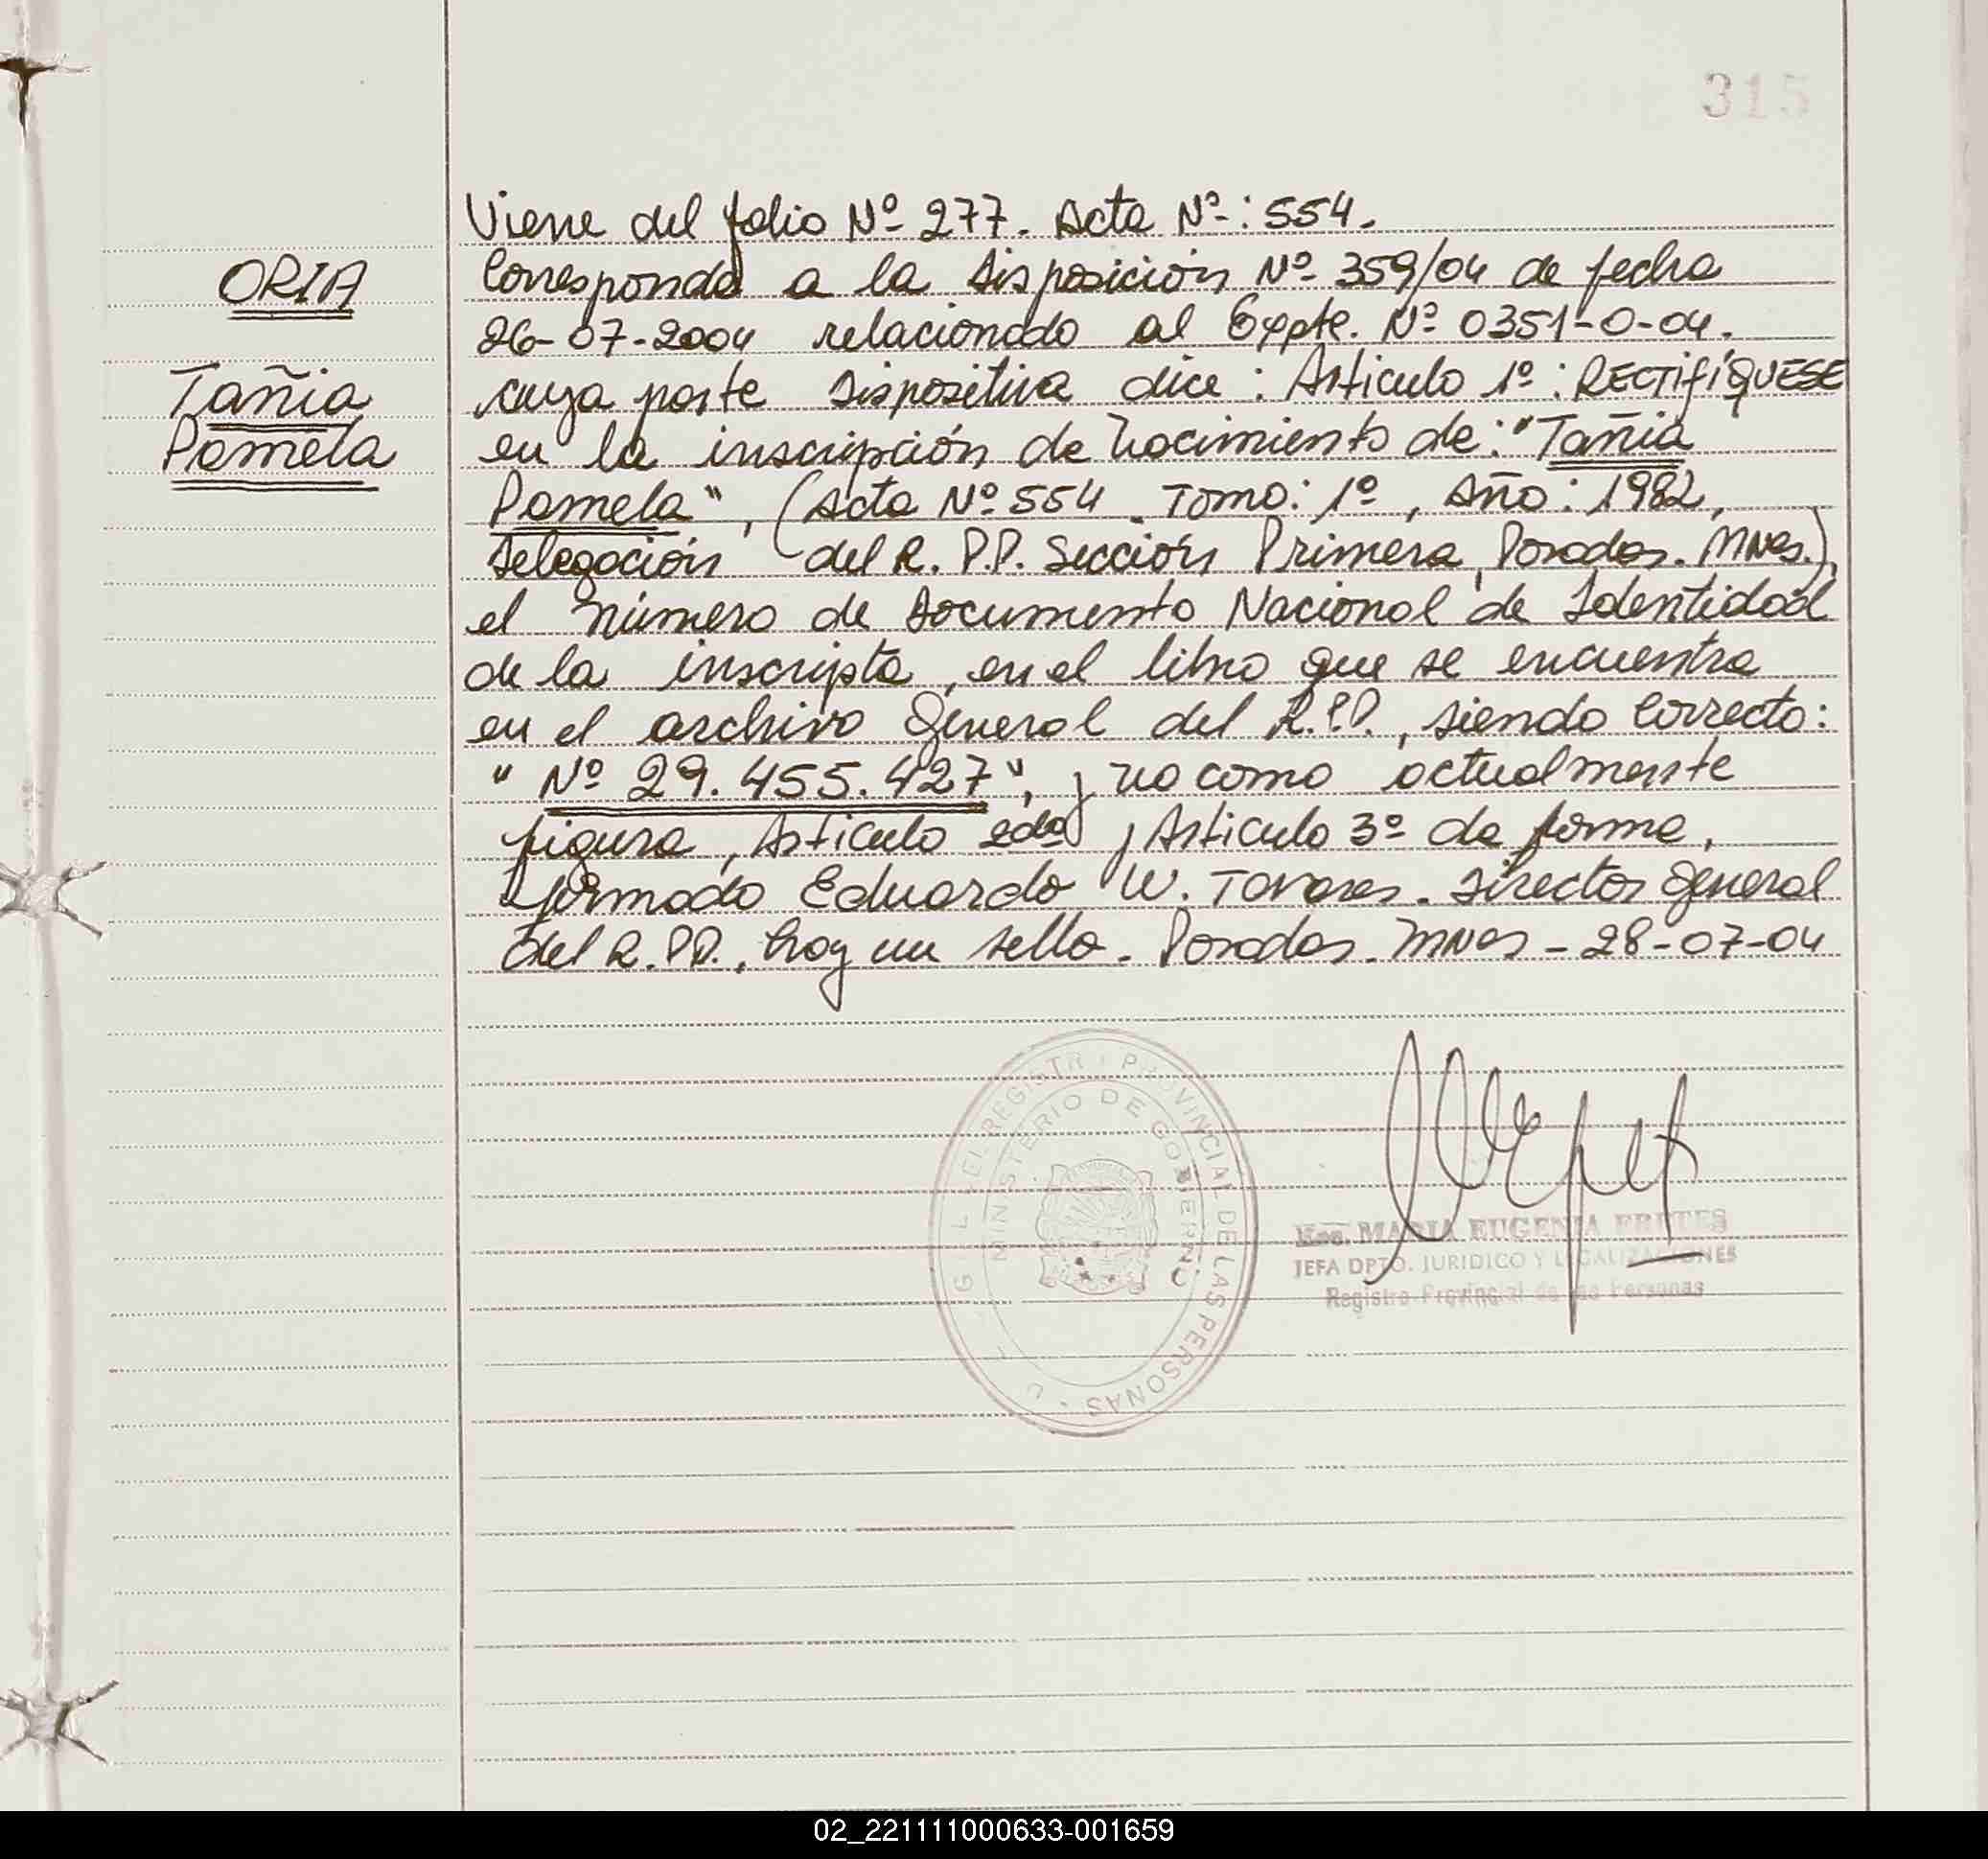 315
Viene del folio Nº 277. Acta Nº: 554.
ORIA
Corresponda a la Disposición Nº 359/04 de fecha
26-07-2004 relacionado al Expte. Nº 0351-O-04.
Tañia
Pamela
cuya parte Dispositiva dice: Articulo 1º: RECTIFÍQUESE
en la inscripción de Nacimiento de: "Tañia
Pamela", (Acta Nº 554. Tomo: 1º, Año: 1982,
Delegación del R. P.P. Sección Primera, Posadas. Mnes.),
el número de Documento Nacional de Identidad
de la inscripta, en el libro que se encuentra
en el archivo General del R.P.P., siendo Correcto:
"Nº 29.455.427", y no como actualmente
figura, Articulo 2do y Articulo 3º de forma,
firmado Eduardo W. Tavares. Director General
del R.PP., hay un sello. Posadas. Mnes - 28-07-04
REGISTR PROVINCIAL DE LAS PERSONAS
MINISTERIO DE GOBIERNO
MARIA EUGENIA FRETES
JEFA DPTO. JURIDICO Y LEGALIZACIONES
Registro Provincial de las Personas
02_221111000633-001659